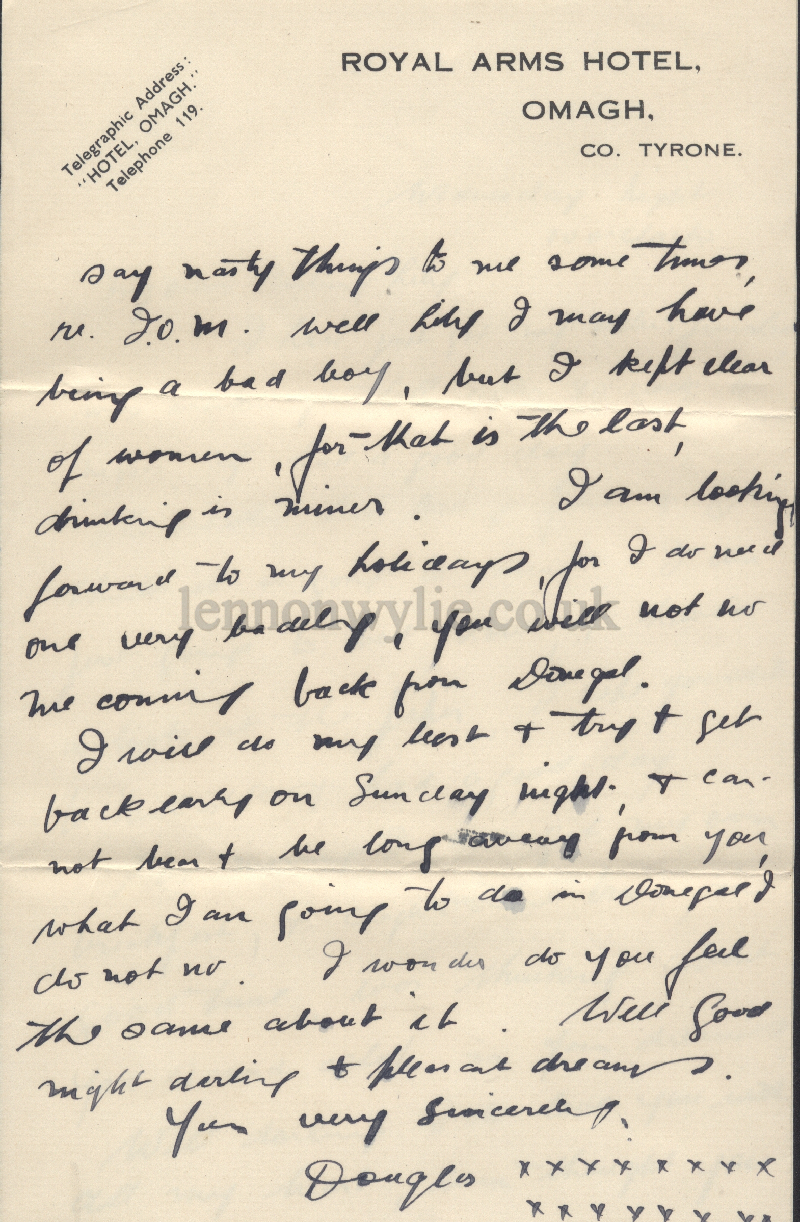 ROYAL ARMS HOTEL,
OMAGH,
CO. TYRONE.
Telegraphic Address:
"HOTEL, OMAGH."
Telephone 119.
say nasty things to me some times,
re. I.O.M. well I may have
being a bad boy, but I kept clear
of women, for that is the last,
drinking is minor. I am looking
forward to my holidays, for I do need
one very badely, you will not no
me coming back from Donegal.
I will do my best + try + get
back early on Sunday night, + can-
not bear + be long away from you,
what I am going to do in Donegal I
do not no. I wonder do you feel
the same about it. Well Good
night darling + pleasant dreams.
Yours very Sincerely,
Douglas x x x x x x x x
x x x x x x x x
lennonwylie.co.uk